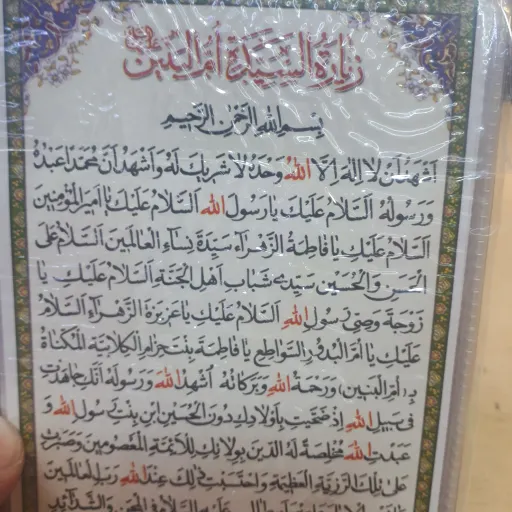 زيارة السيدة أم البنين
بسم الله الرحمن الرحيم
أشهد أن لا إله إلا الله وحده لا شريك له وأشهد أن محمدا عبده
ورسوله السلام عليك يا رسول الله السلام عليك يا أمير المؤمنين
السلام عليك يا فاطمة الزهراء سيدة نساء العالمين السلام على
الحسن والحسين سيدي شباب أهل الجنة السلام عليك يا
زوجة وصي رسول الله السلام عليك يا عزيزة الزهراء السلام
عليك يا أم البدور السواطع يا فاطمة بنت حزام الكلابية المكناة
بأم البنين ورحمة الله وبركاته أشهد الله ورسوله أنك جاهدت
في سبيل الله إذ ضحيت بأولادك دون الحسين ابن بنت رسول الله و
عبدت الله مخلصة له الدين بولائك للأئمة المعصومين وصبرت
على تلك الرزية العظيمة واحتسبت ذلك عند الله رب العالمين
عليه السلام في المحن والشدائد